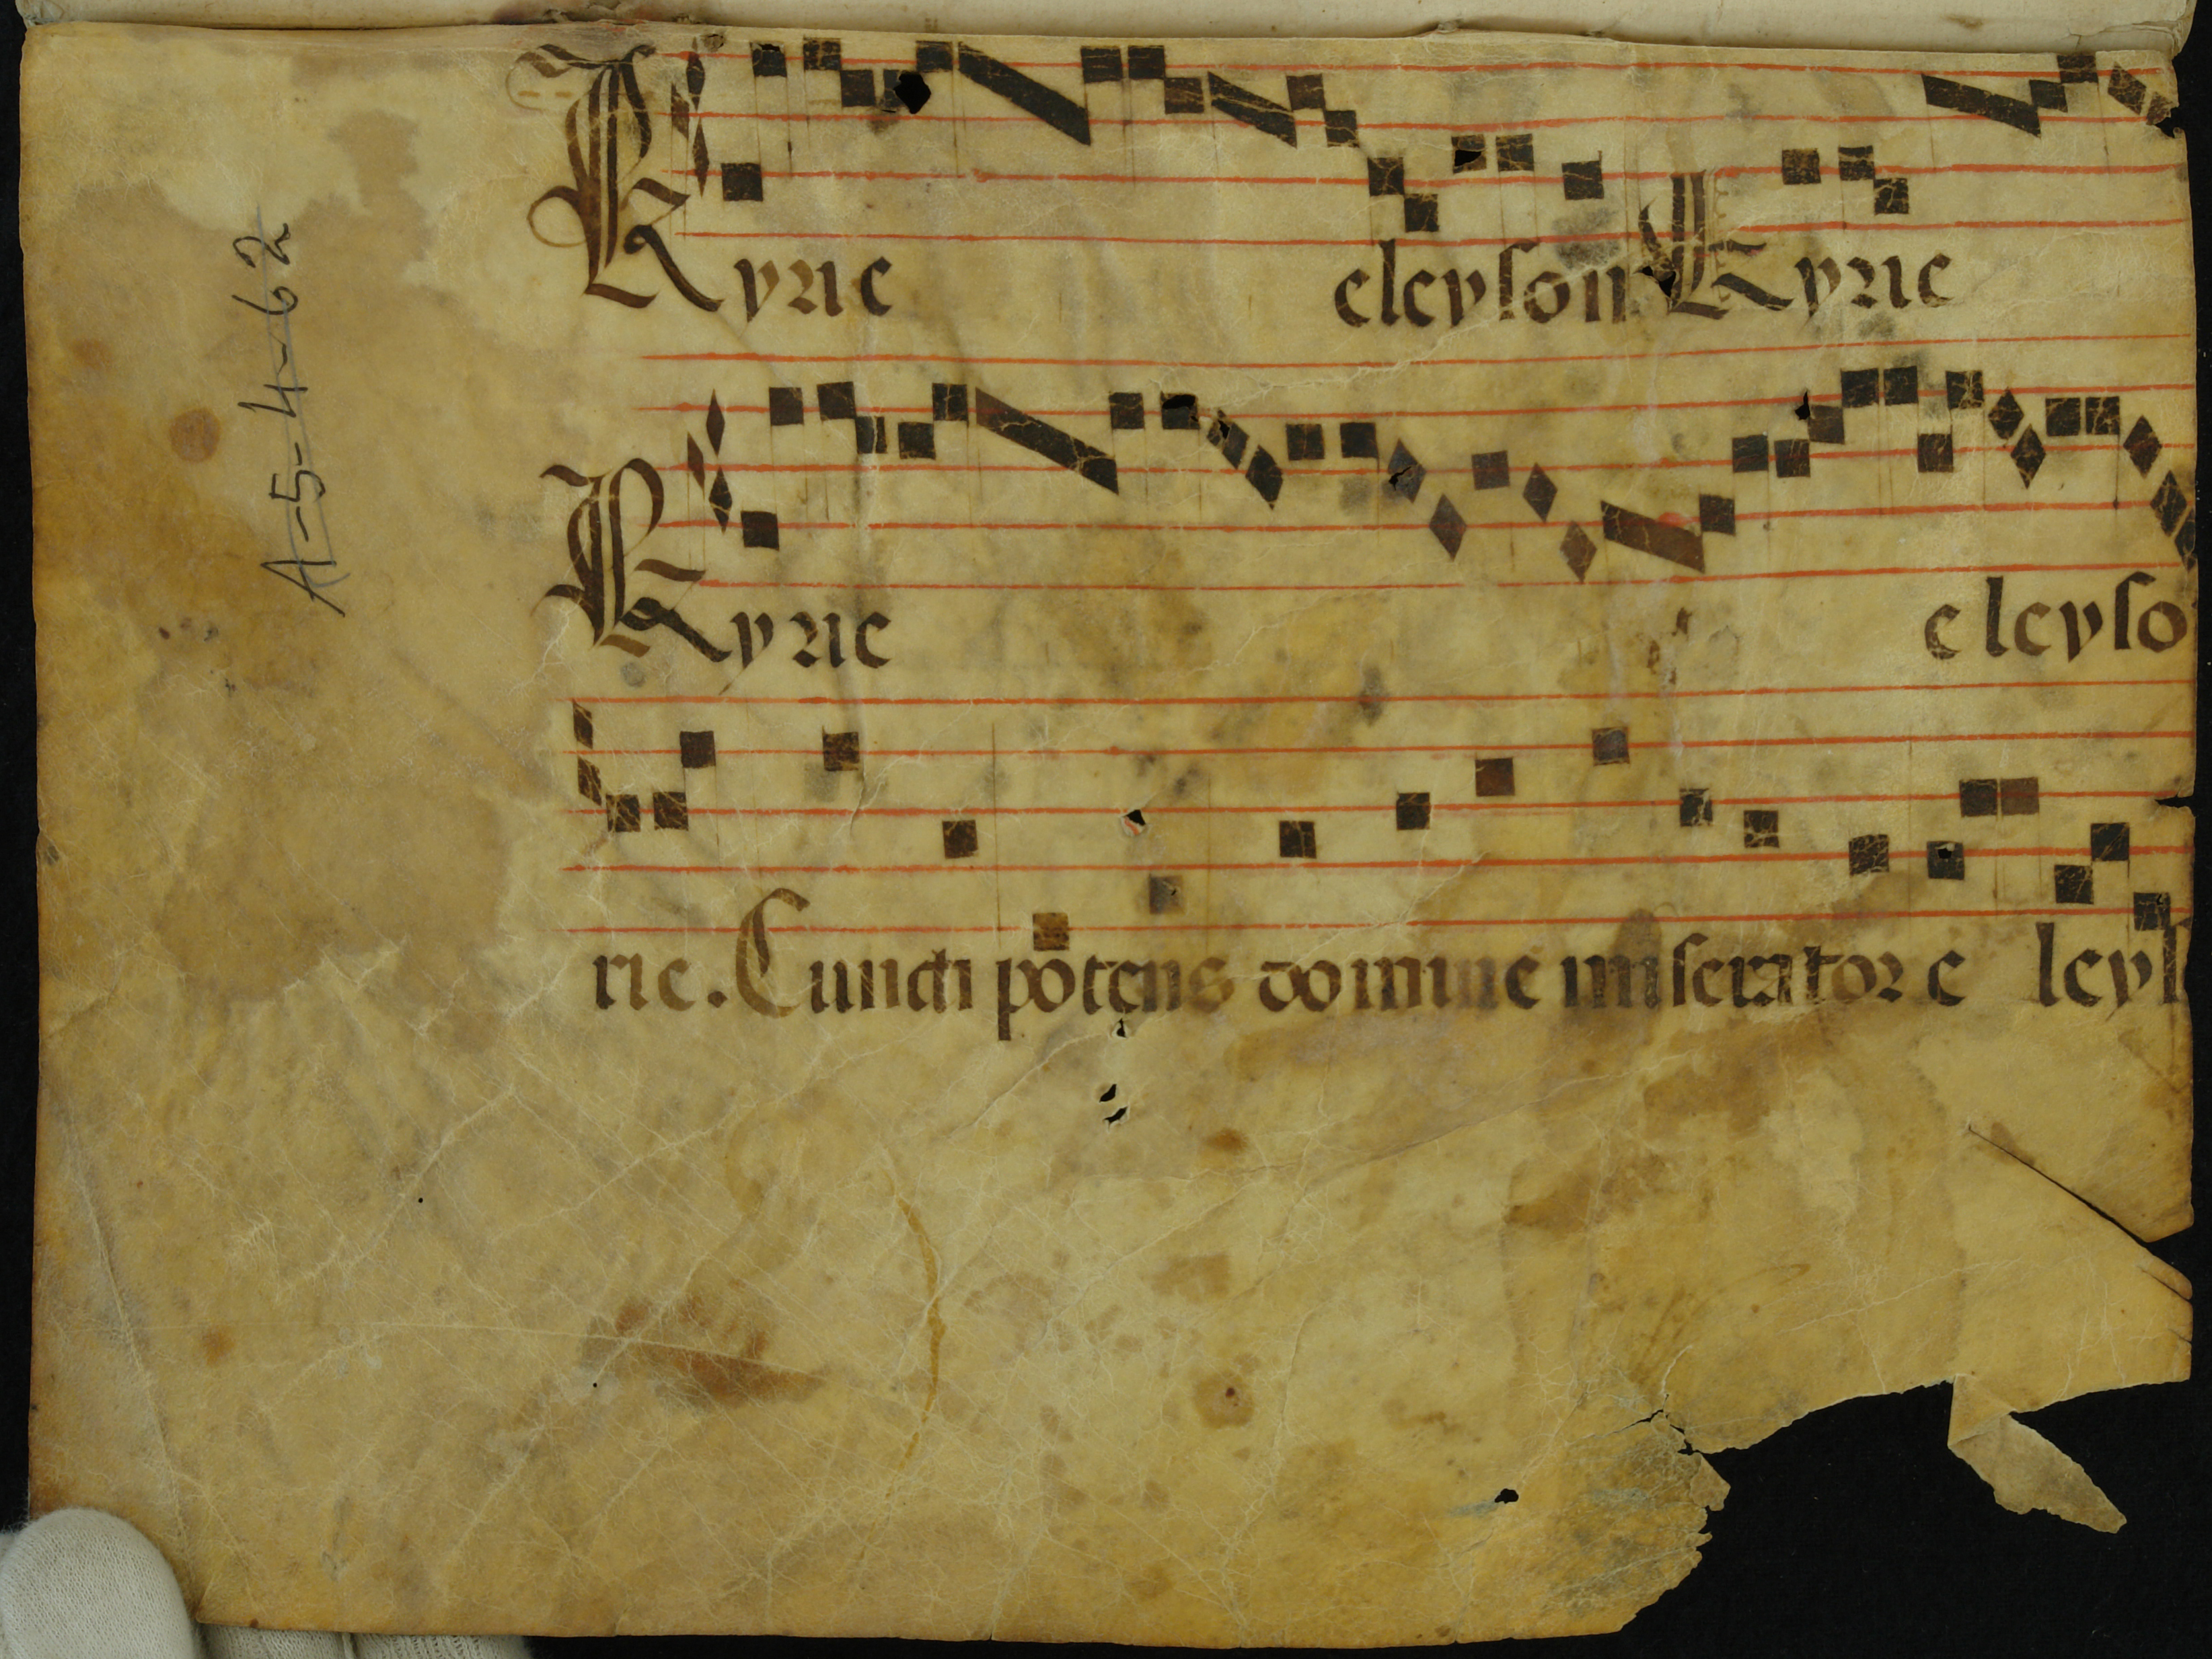 Kyrie eleyson Kyrie
Kyrie eleyso
rie. Cuncti potens domine miserator e leys
A-5-4-62